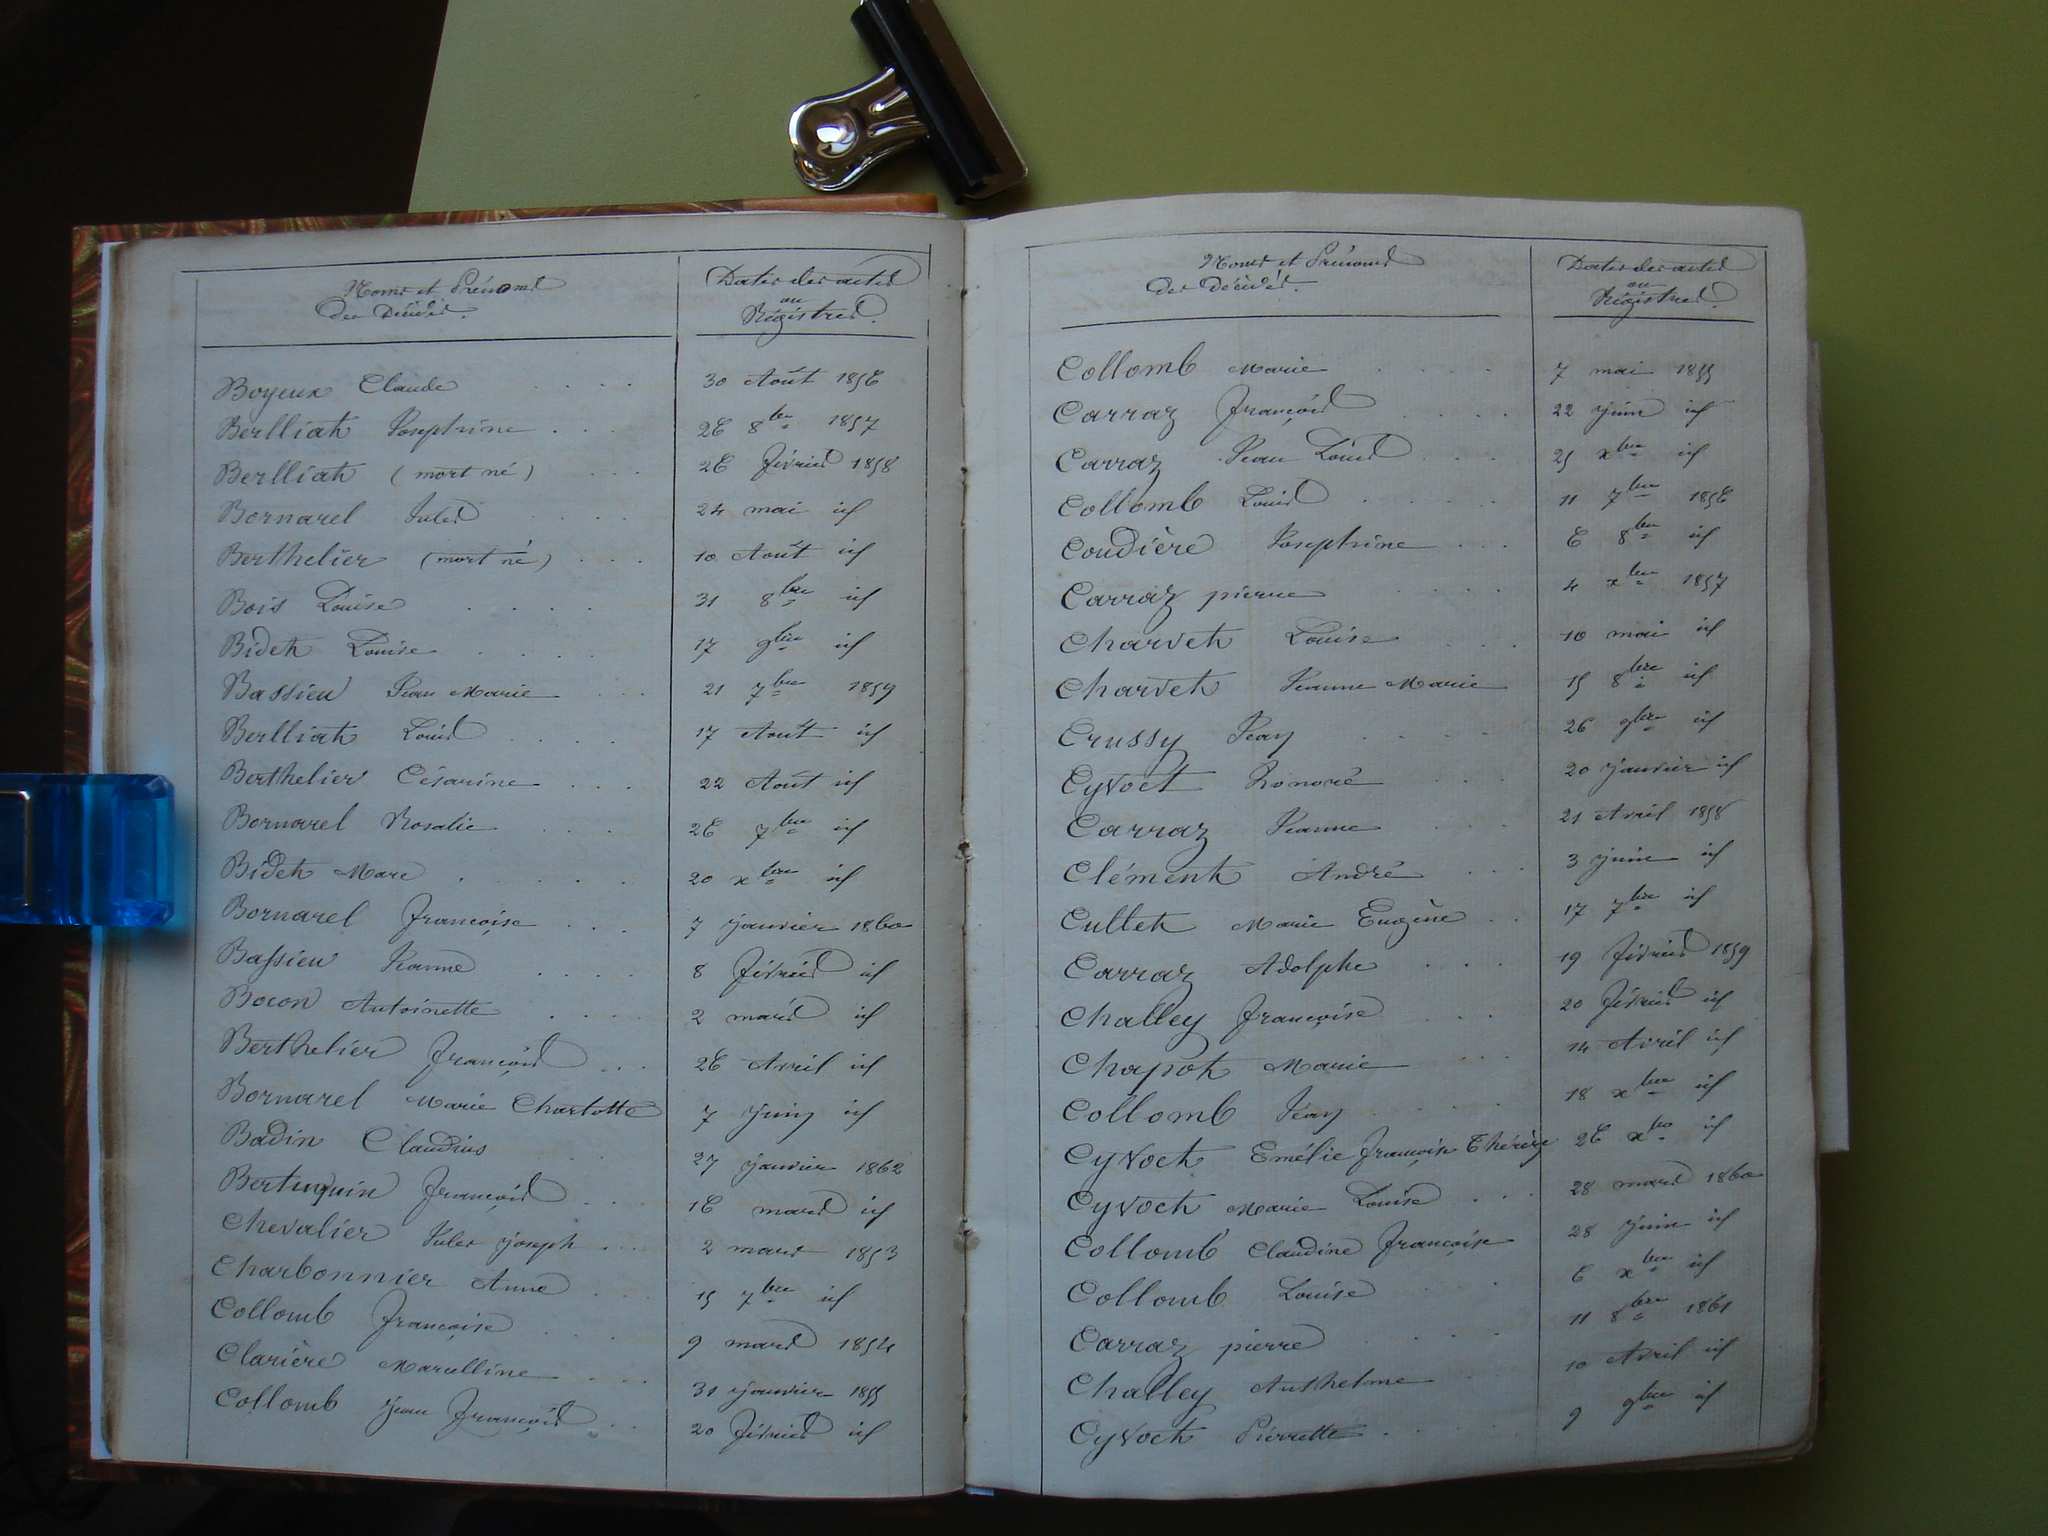 Noms et Prénoms
des Décédés.
Dates des actes
au
Régistres.
Boyeux Claude . . . . 30 Août 1856
Berlliat Joséphine . . . 26 8bre 1857
Berlliat (mort né) . . . 26 février 1858
Bornarel Jules . . . . 24 mai id
Berthelier (mort né) . . . 10 Août id
Bois Louise . . . . 31 8bre id
Bidet Louise . . . . 17 9bre id
Bassieu Jean Marie . . . 21 7bre 1859
Berlliat Louis . . . . 17 Août id
Berthelier Césarine . . . 22 Août id
Bornarel Rosalie . . . . 26 7bre id
Bidet Marc . . . . . 20 xbre id
Bornarel françoise . . . 7 janvier 1860
Bassieu Jeanne . . . . 8 février id
Bocon Antoinette . . . . 2 mars id
Berthelier françois . . . 26 Avril id
Bornarel Marie Charlotte 7 juin id
Badin Claudius . . 27 janvier 1862
françois . . . 16 mars id
Chevalier Jules joseph . . . 2 mars 1853
Charbonnier Anne . . . 15 7bre id
Collomb françoise . . . . 9 mars 1854
Clarière Marcelline . . . . 31 janvier 1855
Collomb jean françois . . 20 février id
Noms et Prénoms
des Décédés.
Dates des actes
au
Régistres.
Collomb Marie . . . . 7 mai 1855
Carraz françois . . . . 22 juin id
Carraz Jean Louis . . . 25 xbre id
Collomb Louis . . . . . 11 7bre 1856
Coudière Joséphine . . . 6 8bre id
Carraz pierre . . . . 4 xbre 1857
Charvet Louise . . . 10 mai id
Charvet Jeanne Marie 15 8bre id
Crussy Jean . . . . 26 9bre id
Cyvoct Honoré . . . 20 janvier id
Carraz Jeanne . . . 21 Avril 1858
Clément André . . . 3 juin id
Cullet Marie Eugène . . 17 7bre id
Carraz Adolphe . . . 19 février 1859
Challey françoise . . . 20 février id
Chapot Marie . . . 14 Avril id
Collomb Jean . . . . 18 xbre id
Cyvoct Emélie françoise Thérèse 26 xbre id
Cyvoct Marie Louise . . . 28 mars 1860
Collomb Claudine françoise 28 juin id
Collomb Louise . . 6 xbre id
Carraz pierre . . . . 11 8bre 1861
Challey Anthelme . . . 10 Avril id
Cyvoct Pierrette . . . . 9 9bre id